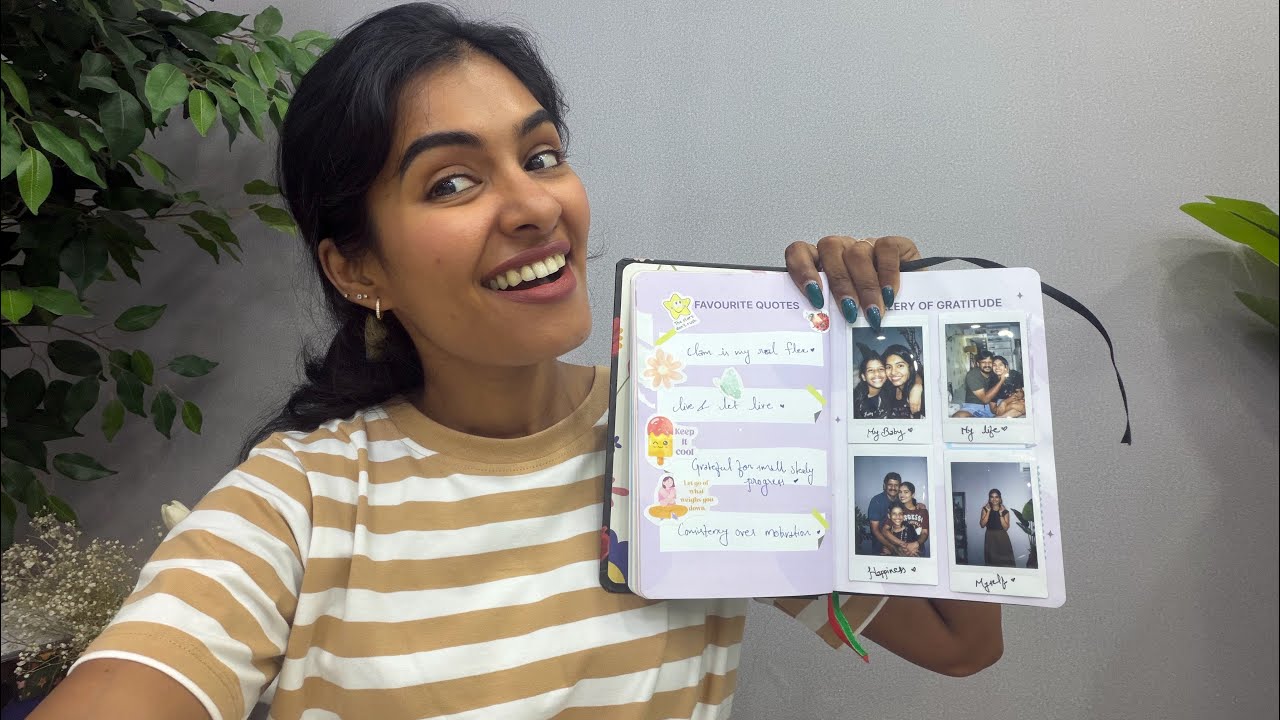 FAVOURITE QUOTES
Clam is my real flex ♥
live & let live ♥
Keep
it
cool
Grateful for small stedy
progress ♥
Let go of
what
weighs you
down
Consistency over motivation ♥
LERY OF GRATITUDE
My Baby ♥
My life ♥
Happiness ♥
Myself ♥